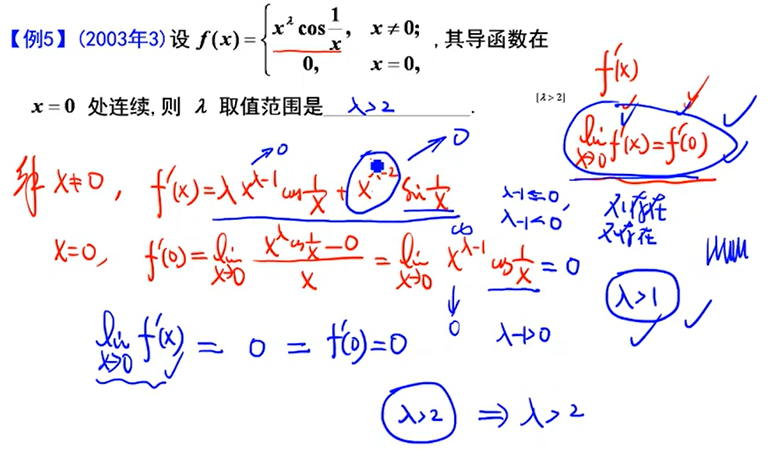 【例5】(2003年3) 设 f(x) = { x^λ cos 1/x, x ≠ 0; 0, x = 0, ,其导函数在
x = 0 处连续,则 λ 取值范围是 λ>2 .
[λ>2]
f'(x)
lim x→0 f'(x) = f'(0)
x≠0, f'(x) = λ x^(λ-1) cos 1/x + x^(λ-2) sin 1/x
→0
→0
λ-1=0,
λ-1<0
不存在
不存在
x=0, f'(0) = lim x→0 (x^λ cos 1/x - 0)/x = lim x→0 x^(λ-1) cos 1/x = 0
λ>1
↓
0
λ-1>0
lim x→0 f'(x) = 0 = f'(0) = 0
λ>2 ⇒ λ>2